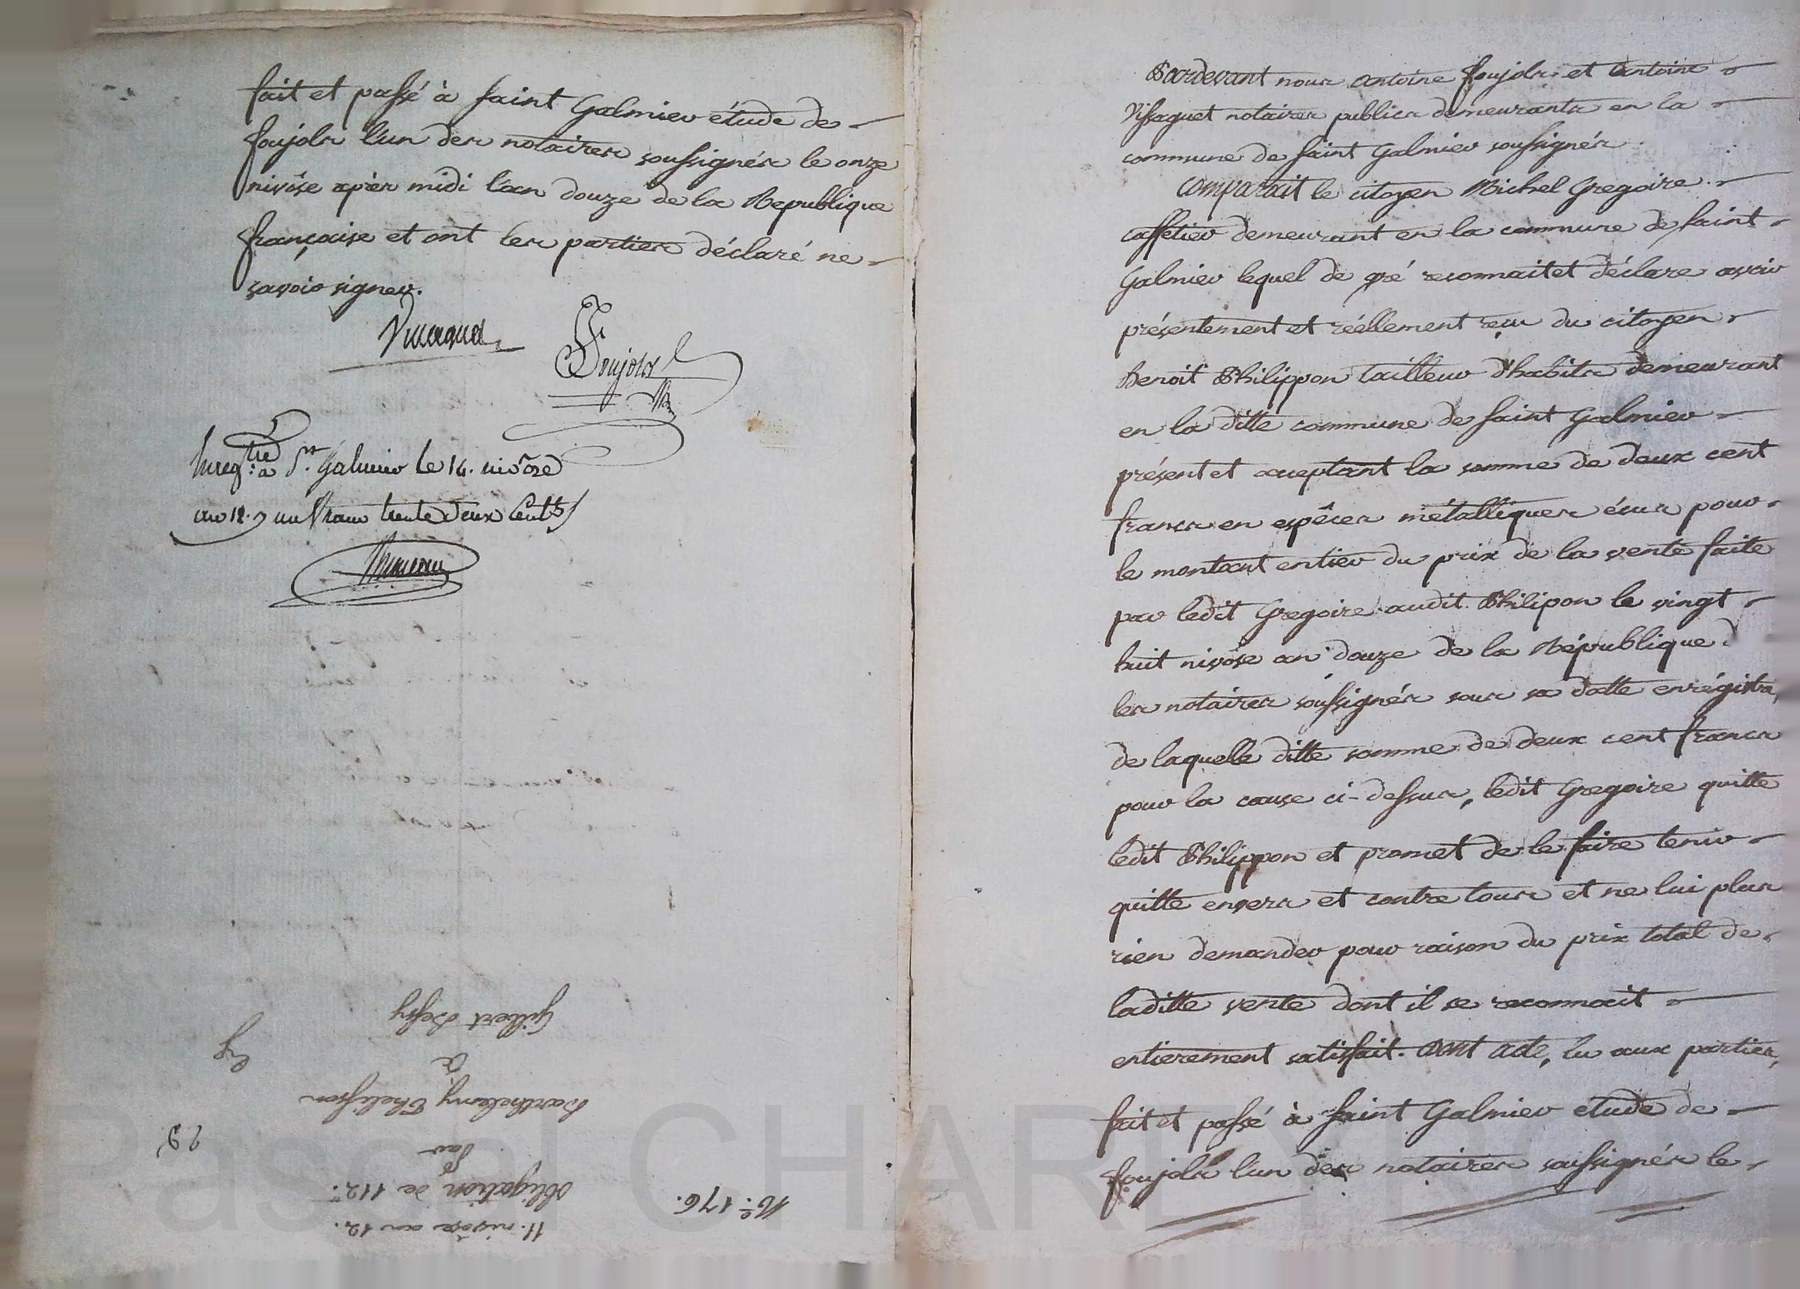 fait et passé à saint Galmier étude de
foujols l'un des notaires soussignés le onze
nivôse après midi l'an douze de la Republique
française et ont les parties déclaré ne
savoir signer.
Foujols
Enregtré à St. Galmier le 14. nivose
an 12. un franc trente deux Cents
Gilbert Bessy
à
Barthelemy Thelisson
par
obligation de 112.
11. nivôse an 12.
29
No. 176.
Pardevant nous Antoine foujols et Antoine
Vissaguet notaires publics demeurants en la
commune de saint Galmier soussignés
Comparait le citoyen Michel Gregoire
caffetier demeurant en la commune de saint
Galmier lequel de gré reconnait et déclare avoir
présentement et réellement reçu du citoyen
Benoit Philippon tailleur d'habits demeurant
en la ditte commune de saint Galmier
présent et acceptant la somme de deux cent
francs en espêces métalliques écus pour
le montant entier du prix de la vente faite
par ledit Gregoire audit Philipon le vingt
huit nivôse an douze de la République
les notaires soussignés sous sa datte enrégistra
de laquelle ditte somme de deux cent francs
pour la cause ci-dessus, ledit Gregoire quitte
ledit Philippon et promet de le faire tenir
quitte envers et contre tous et ne lui plus
rien demander pour raison du prix total de
laditte vente dont il se reconnait
entierement satisfait. Dont acte, lu aux parties,
fait et passé à saint Galmier etude de
foujols l'un des notaires soussignés le
Pascal CHAREYRON